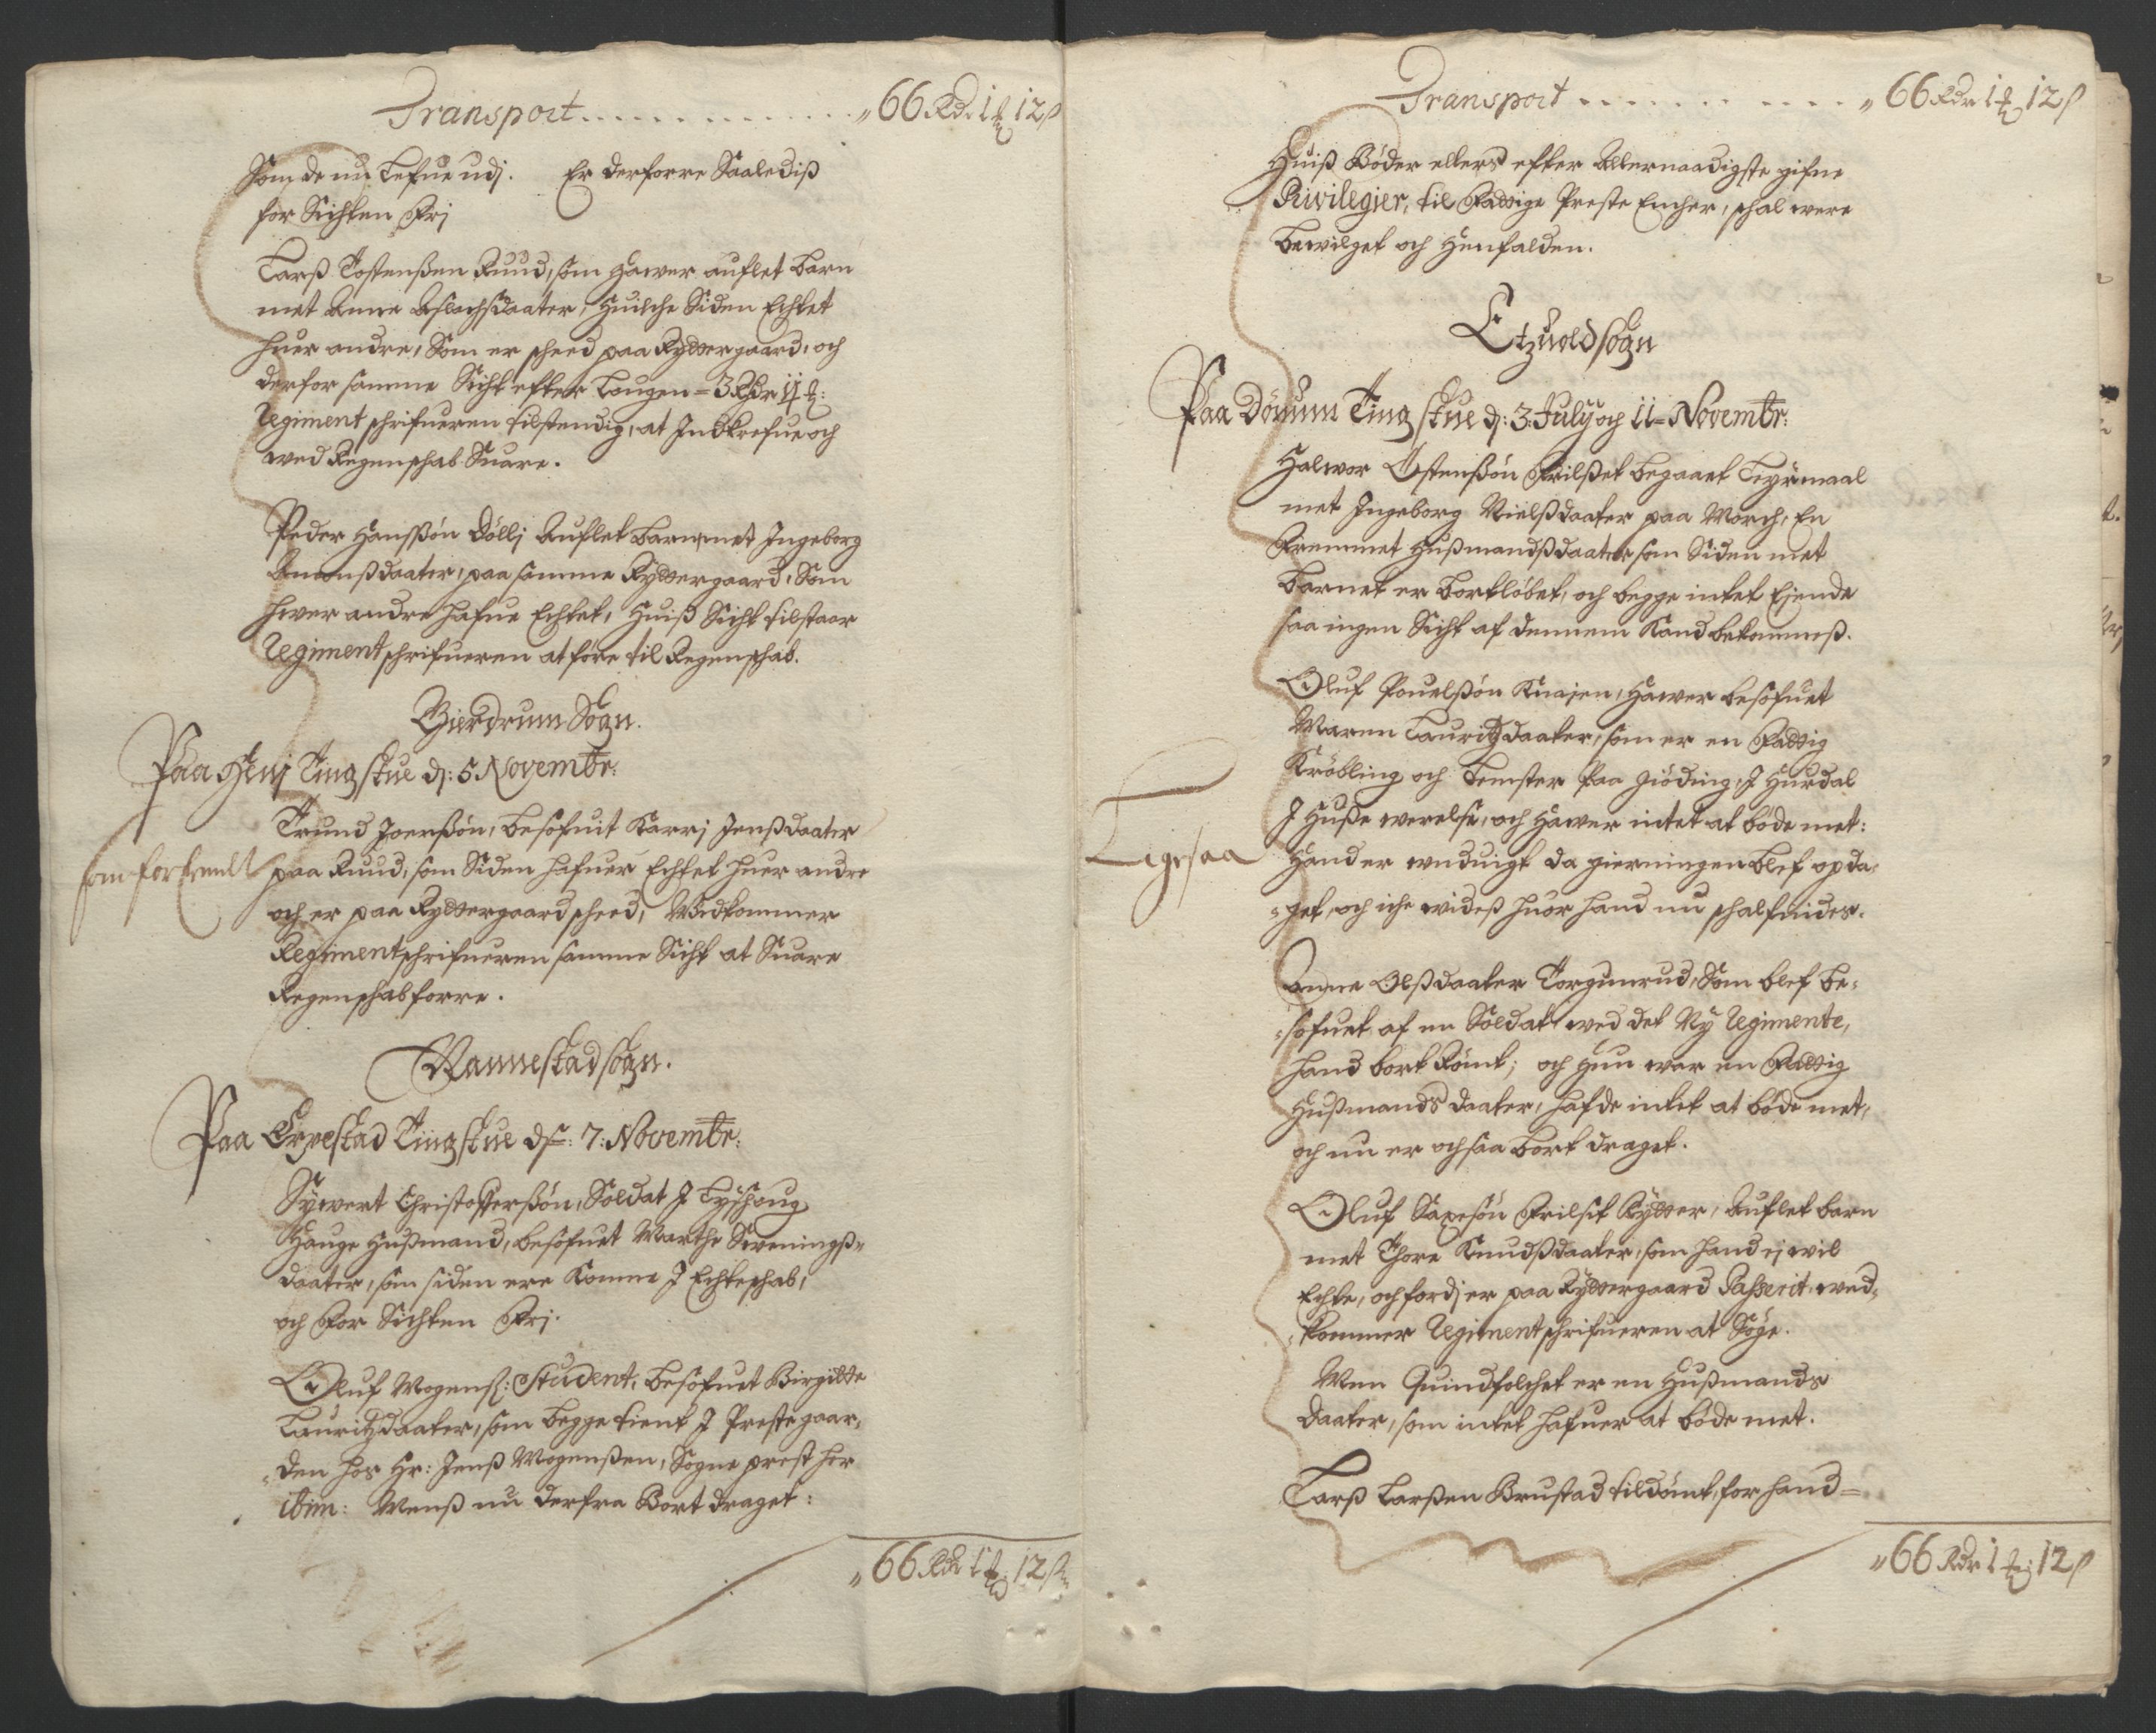 Transport . . . . . . . . . . . . . „ 66 Rdr 1 ℔ 12 ß
Som de nu Lefue udj. Er derforre Saalediß
for Sichten Frj
Larß Tostenßen Ruud, som hawer auflet barn
met Anne Aslachsdaater, Huilche Siden Echtet
huer andre, Som er scheed paa Ryttergaard, och
derfor samme Sicht efter Lougen = 3 Rdr
Regimentschrifueren tilstendig, at Indkrefue och
wed Regenschab Suare.
Peder Hanssøn Dølli Auflet Barn met Ingeborg
Amonßdaater, paa samme Ryttergaard, Som
hwer andre hafue Echtet, Huiß Sicht tilstaar
Regimentschrifueren at føre til Regenschab.
Gierdrum Sogn.
Paa Henj Ting stue d: 5 Novembr:
Trund Joerßøn, besofuit Karrj Jenßdaater
som forkendt
paa Ruud, som Siden hafuer Echtet huer andre
och er paa Ryttergaard scheed, Vedkommer
Regimentschrifueren samme Sicht at Suare
Regenschab forre.
Nannestad sogn.
Paa Erpestad Ting stue d: 7: Novembr:
Sywert Christofferßøn, Soldat J
Hauge Hußmand, besofuet Marthe Sweningß-
daater, som siden ere Komne J Echteschab,
och For Sichten Frj.
Oluf Mogenß: Student, besofuet Birgitte
Lauritzdaater, som begge tient J Prestegaar-
-den hos Hr: Jenß Mogenßen, Sogne prest her
ibim: Menß nu derfra Bort draget:
„ 66 Rdr 1 ℔ 12 ß
Transport . . . . . . . . . . . „ 66 Rdr 1 ℔ 12 ß
Huiß Bøder ellers efter Allernaadigste gifne
Privilegier, til Fattige Preste Encher, schal were
bewilget och Henfalden.
Etzuold sogn
Paa Dønum Ting stue d: 3: July och 11 = Novembr:
Halwor Østenßøn Frilßet begaaet Leyrmaal
met Ingeborg Nielßdaater paa Morch, En
Fremmet Hußmandßdaater som Siden met
Barnet er Bortløbet, och begge intet Eiende
saa ingen Sicht af dennem Kand bekommeß.
Oluf Pouelßøn Knaien, Hawer besofuet
Maren Lauritzdaater, som er en Fattig
Krøbling och Lemster Paa Giøding, J Hurdal
J Huße werelse, och Hawer intet at bøde met:
Ligesaa
Hand er unduigt da gierningen blef opda-
-get, och iche wideß huor hand nu schal findes.
Anne Olßdaater Torgunrud, Som blef be-
-sofuet af en Soldat wed det Ny Regimente,
hand bort Rømt; och Hun war en Fattig
Hußmands daater, hafde intet at bøde met,
och nu er ochsaa bort draget.
Oluf Saxesøn Frilset Rytter, Auflet barn
met Thore Knudßdaater, som hand ej wil
Echte, och fordj er paa Ryttergaard Passerit, wed-
-kommer Regimentschrifueren at Søge.
Men Quindfolchet er en Hußmands
daater, som intet hafuer at bøde met.
Larß Larßen Brustad tildømt, for hand =
„ 66 Rdr 1 ℔ 12 ß